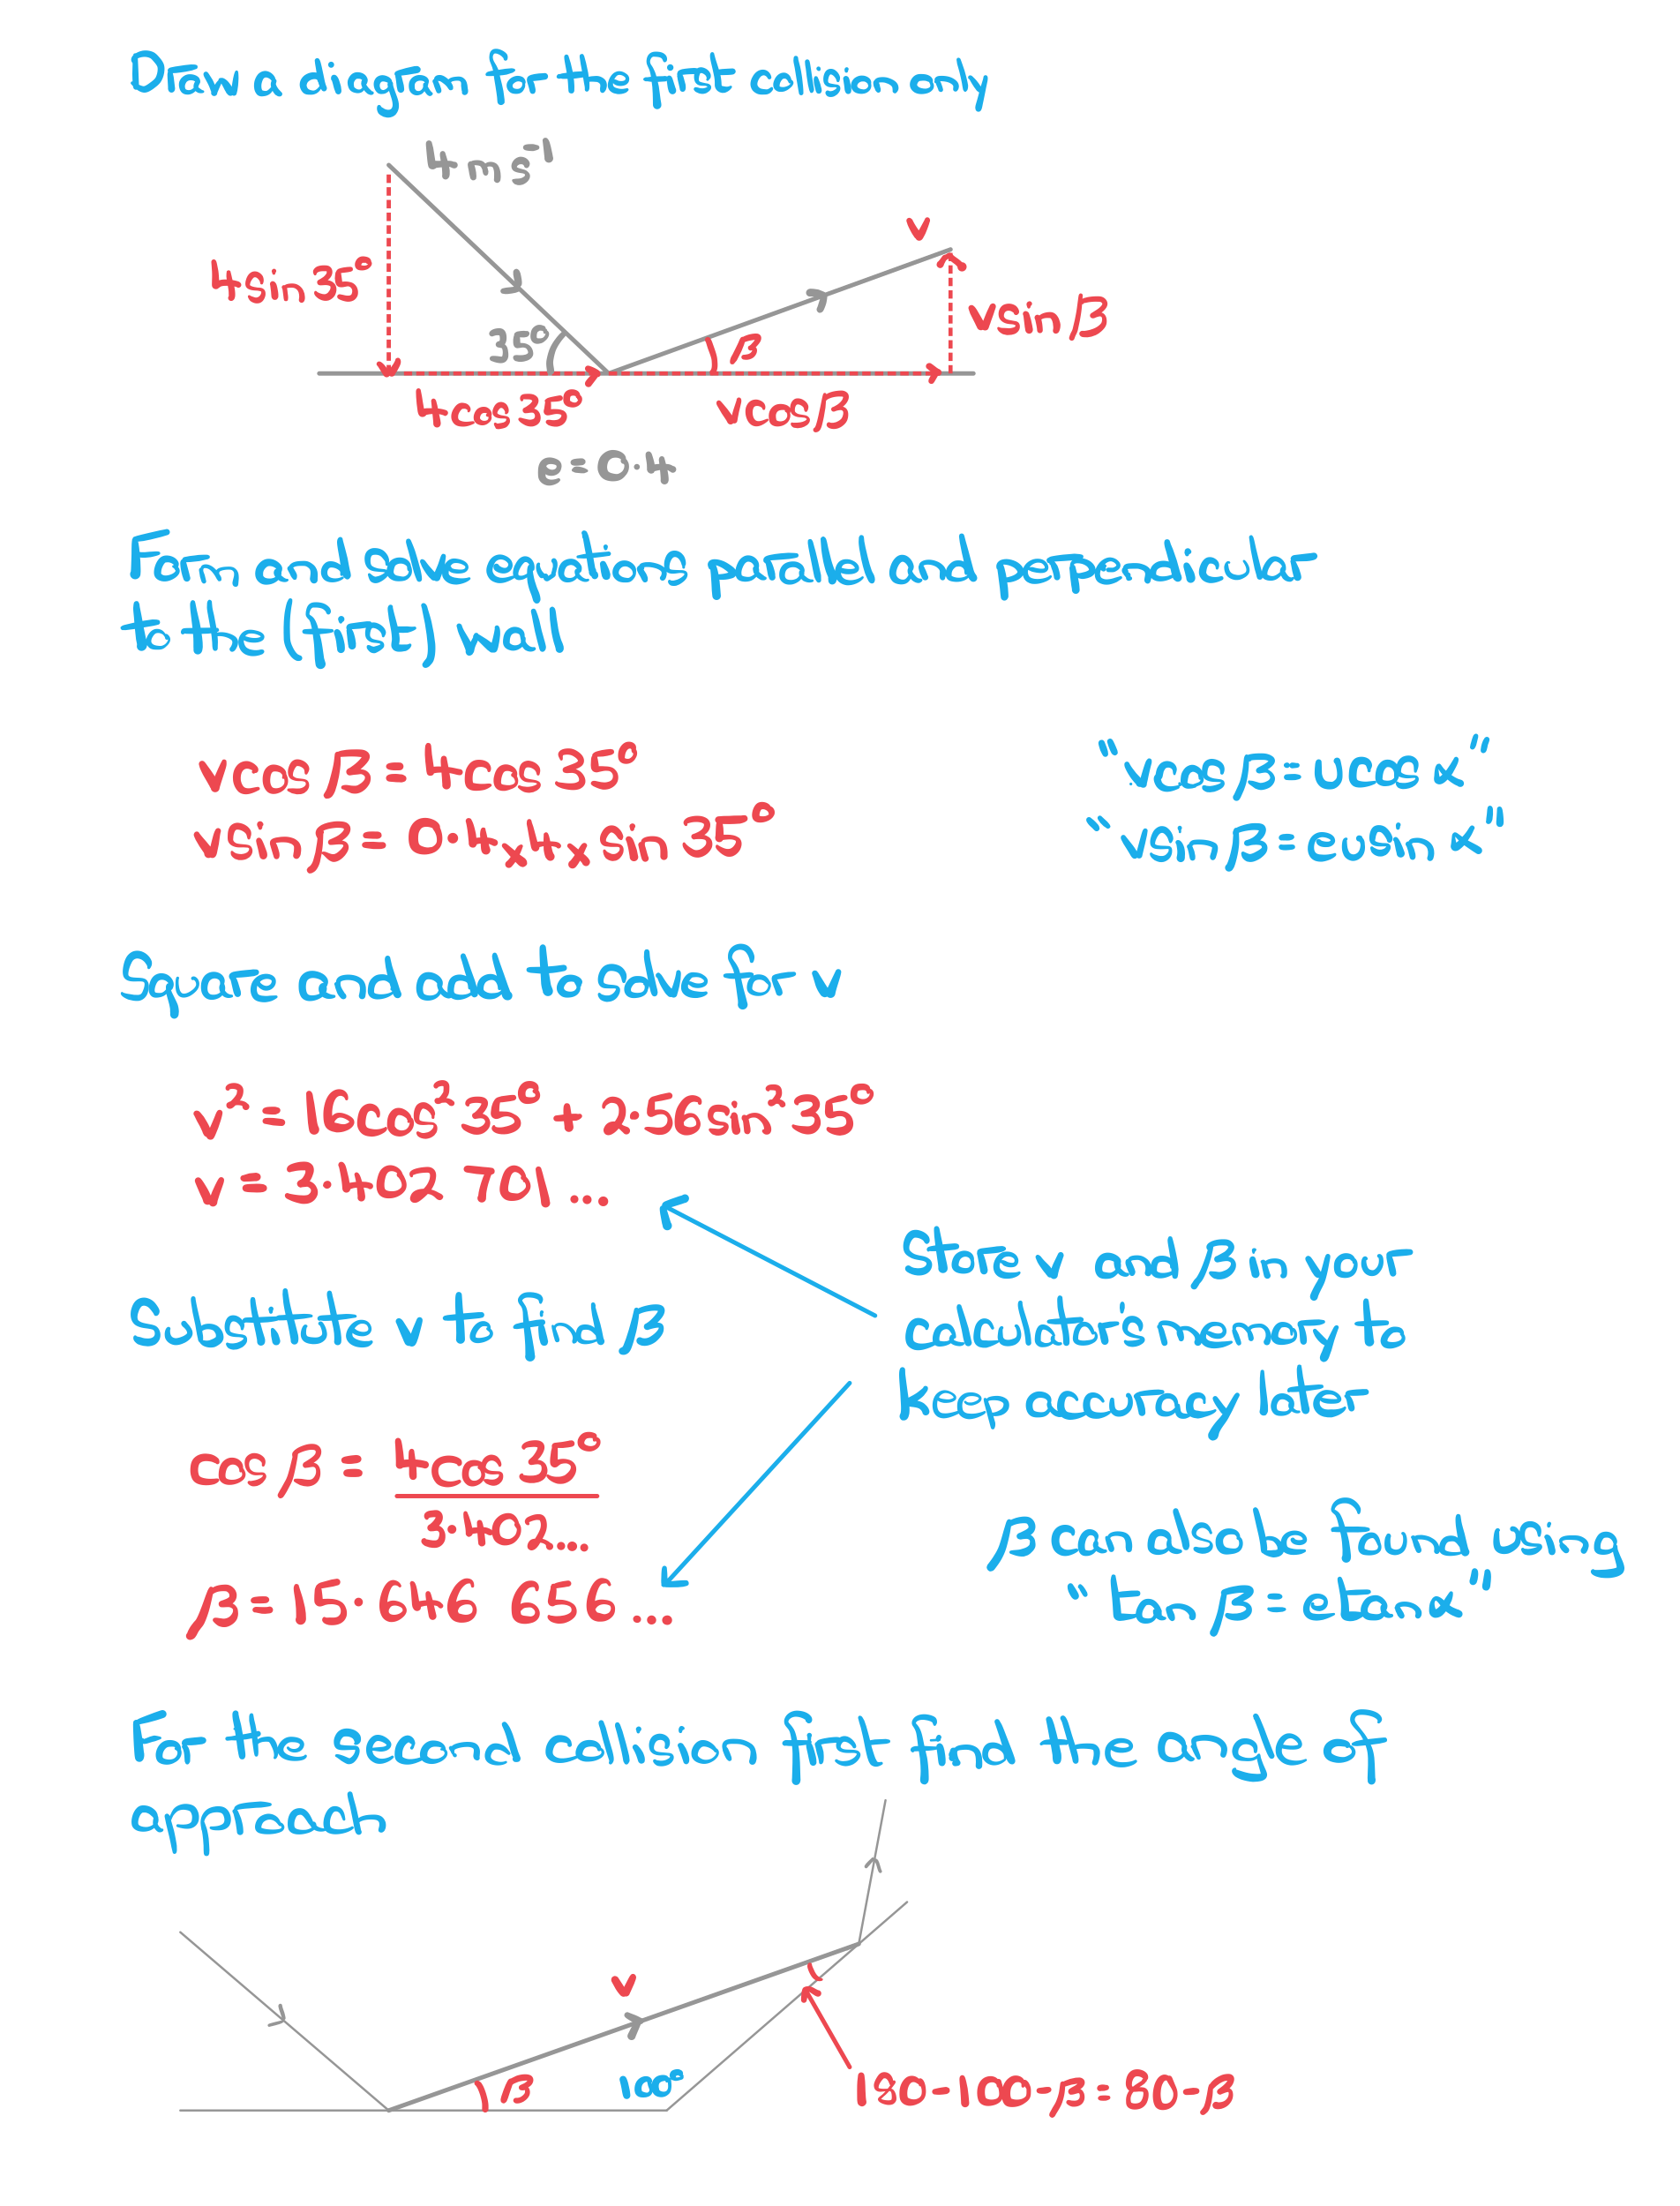 Draw a diagram for the first collision only
4 m s⁻¹
v
4sin 35°
v sin β
35°
β
4cos 35°
v cos β
e = 0·4
Form and solve equations parallel and perpendicular
to the (first) wall
v cos β = 4cos 35°
"v cos β = u cos α"
v sin β = 0·4 × 4 × sin 35°
"v sin β = e u sin α"
Square and add to solve for v
v² = 16cos² 35° + 2·56 sin² 35°
v = 3·402 701 ...
Store v and β in your
calculator's memory to
keep accuracy later
Substitute v to find β
cos β = 4cos 35°
3·402...
β = 15·646 656 ...
β can also be found using
"tan β = e tan α"
For the second collision first find the angle of
approach
v
β
100°
180 - 100 - β = 80 - β